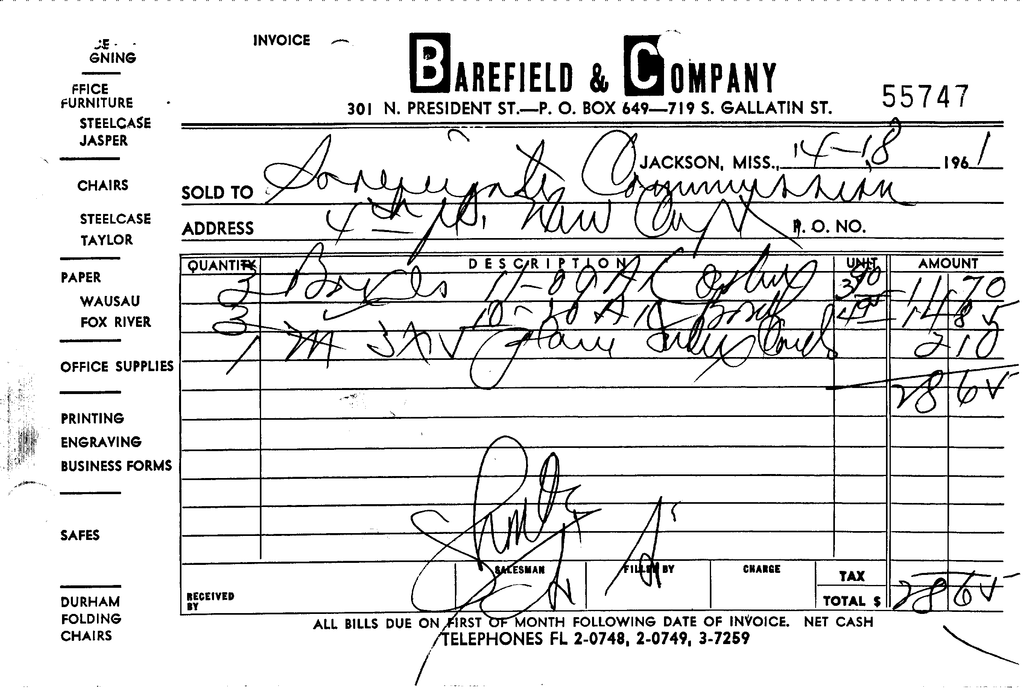 INVOICE
BAREFIELD & COMPANY
301 N. PRESIDENT ST.—P. O. BOX 649—719 S. GALLATIN ST.
55747
GNING
FFICE
FURNITURE
STEELCASE
JASPER
CHAIRS
STEELCASE
TAYLOR
PAPER
WAUSAU
FOX RIVER
OFFICE SUPPLIES
PRINTING
ENGRAVING
BUSINESS FORMS
SAFES
DURHAM
FOLDING
CHAIRS
JACKSON, MISS., 4-18 1961
SOLD TO Sovereignty Commission
ADDRESS New Cap P. O. NO.
QUANTITY DESCRIPTION UNIT AMOUNT
3 Boxes 490 14 70
3 495 14 85
1 M 3X5 Index Cards 2 10
28 65
RECEIVED BY SALESMAN FILLED BY CHARGE TAX
TOTAL $ 28 65
ALL BILLS DUE ON FIRST OF MONTH FOLLOWING DATE OF INVOICE. NET CASH
TELEPHONES FL 2-0748, 2-0749, 3-7259